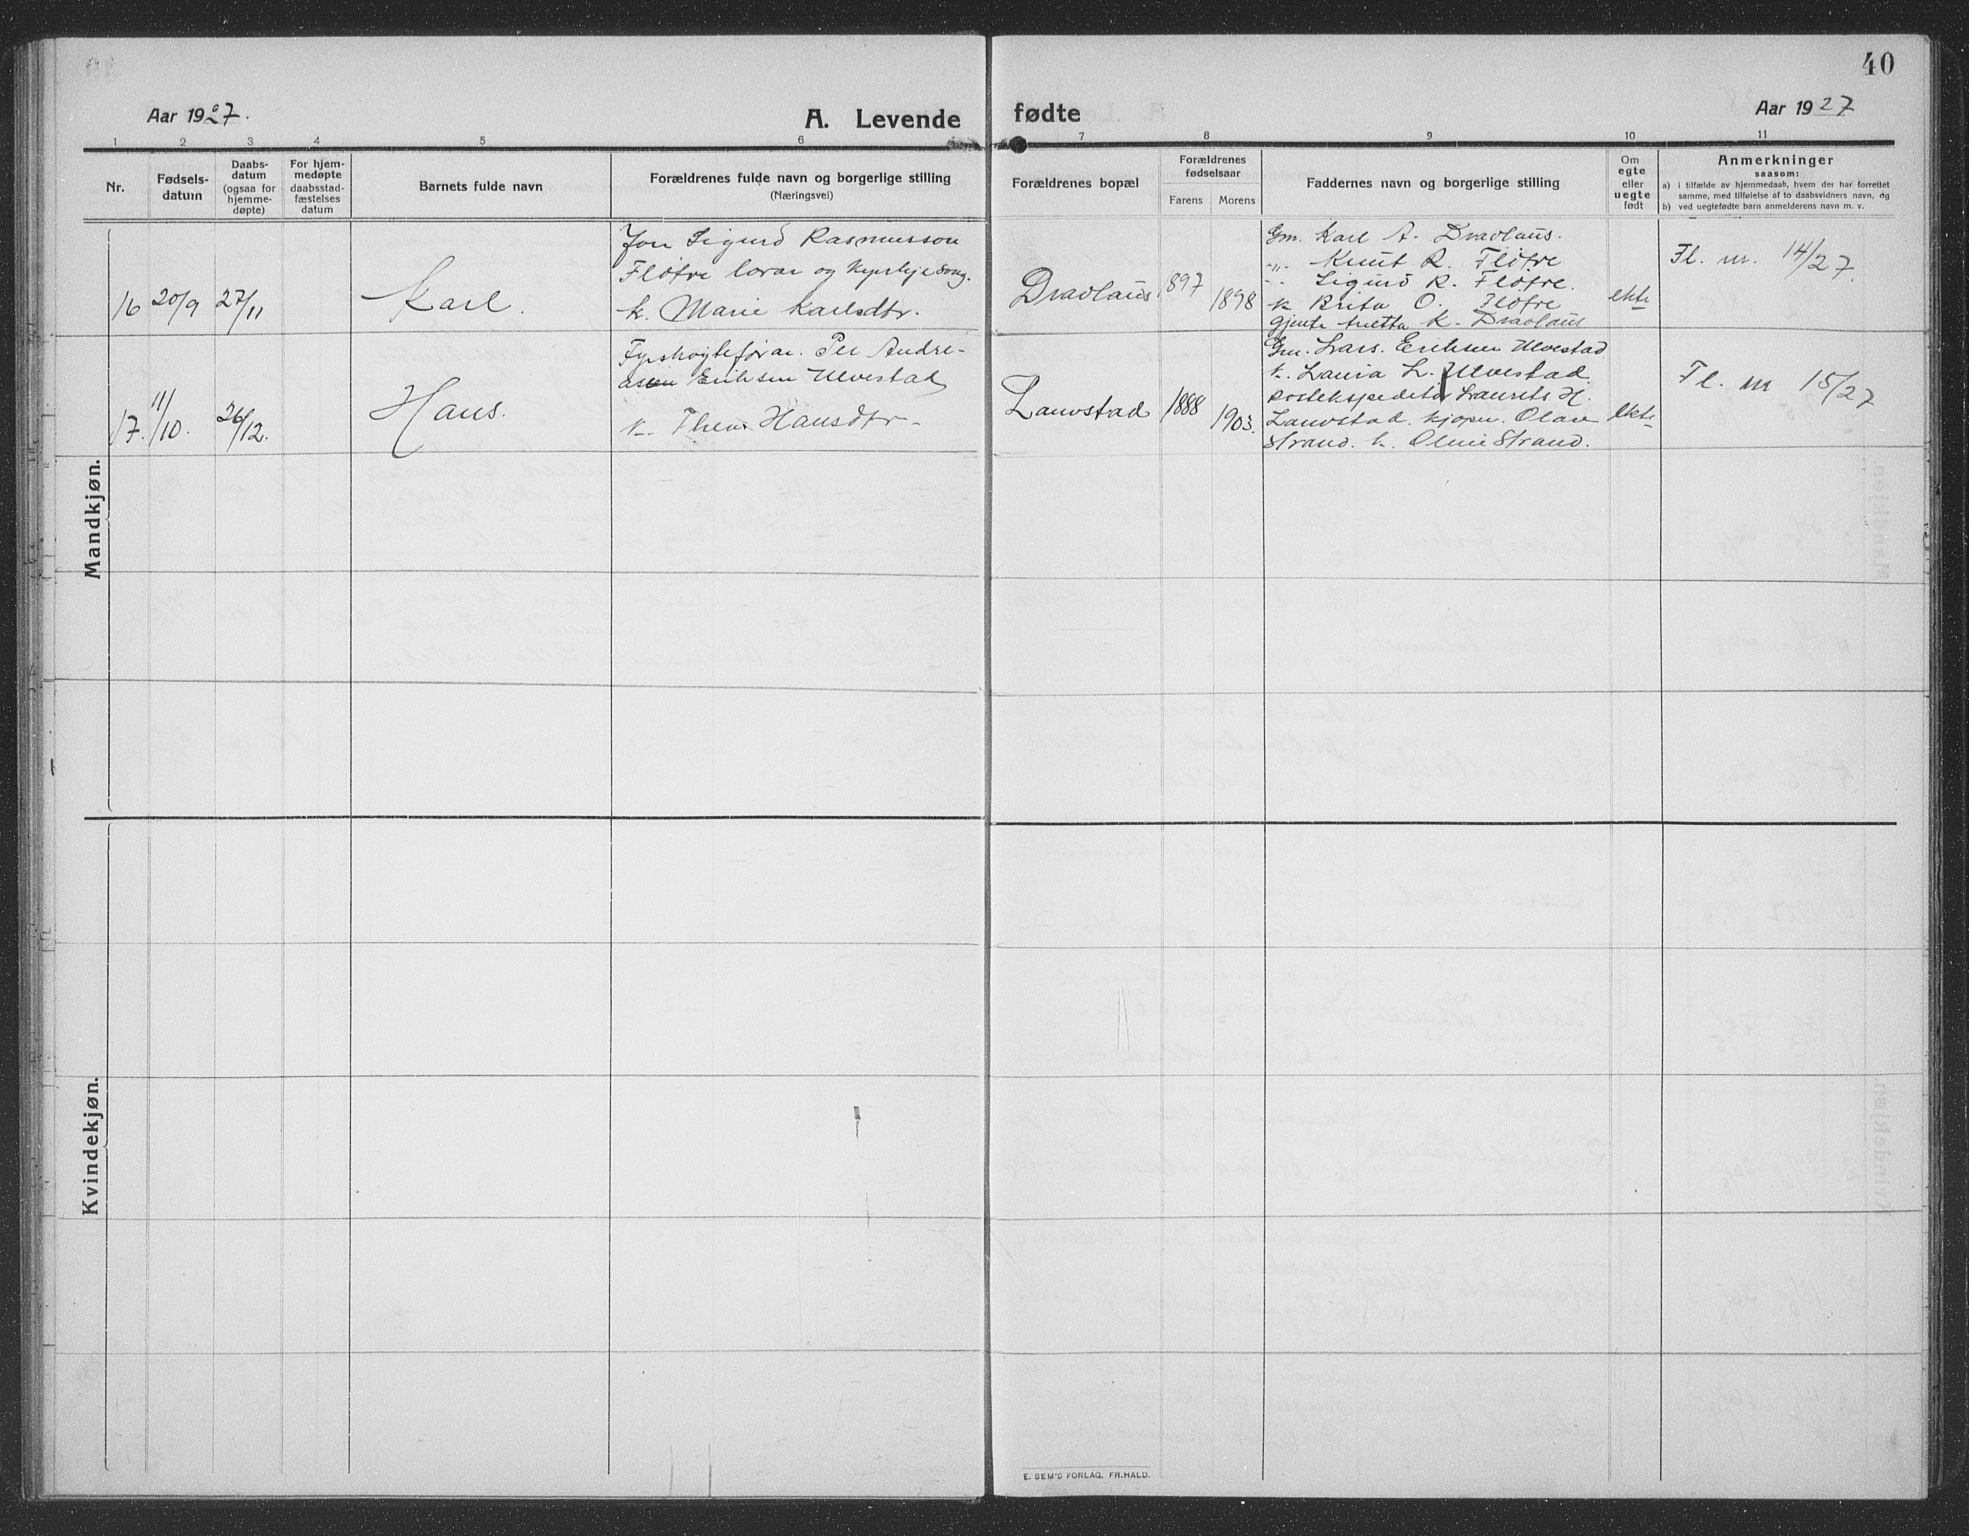 40
Aar 1927.
A. Levende fødte
Aar 1927
1 2 3 4 5 6 7 8 9 10 11
Nr.
Fødsels-
datum
Daabs-
datum
(ogsaa for
hjemme-
døpte)
For hjem-
medøpte
daabsstad-
fæstelses
datum
Barnets fulde navn
Forældrenes fulde navn og borgerlige stilling
(Næringsvei)
Forældrenes bopæl
Forældrenes
fødselsaar
Farens Morens
Faddernes navn og borgerlige stilling
Om
egte
eller
uegte
født
Anmerkninger
saasom:
a) i tilfælde av hjemmedaab, hvem der har forrettet
samme, med tilføielse af to daabsvidners navn, og
b) ved uegtefødte barn anmelderens navn m. v.
Mandkjøn.
16 20/9 27/11 Karl.
Jon Sigurd Rasmusson
Fløtre lærar og kyrkjesong.
k. Marie Karlsdtr.
Dravlaus 1897 1898
Gm. Karl A. Dravlaus.
-„- Knut R. Fløtre
-„- Sigurd R. Fløtre.
k. Brita O. Fløtre
gjente K. Dravlaus
ekte
Fl. nr. 14/27.
17. 11/10. 26/12. Hans.
Per Andre-
Eriksen Ulvestad
k. Thea Hansdtr.
Lauvstad 1888 1903.
Gm. Lars. Eriksen Ulvestad
k. Laura L. Ulvestad.
postekspeditør Laurits H.
Lauvstad. kjøpm. Olav
Strand. k. Oline Strand.
ekte
Fl. nr 15/27
Kvindekjøn.
E. SEM'S FORLAG, FR.HALD.